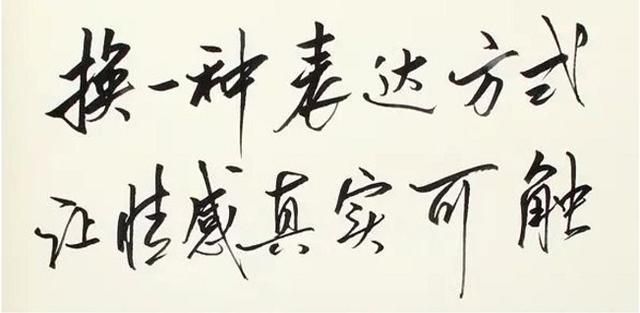 换一种表达方式
让情感真实可触